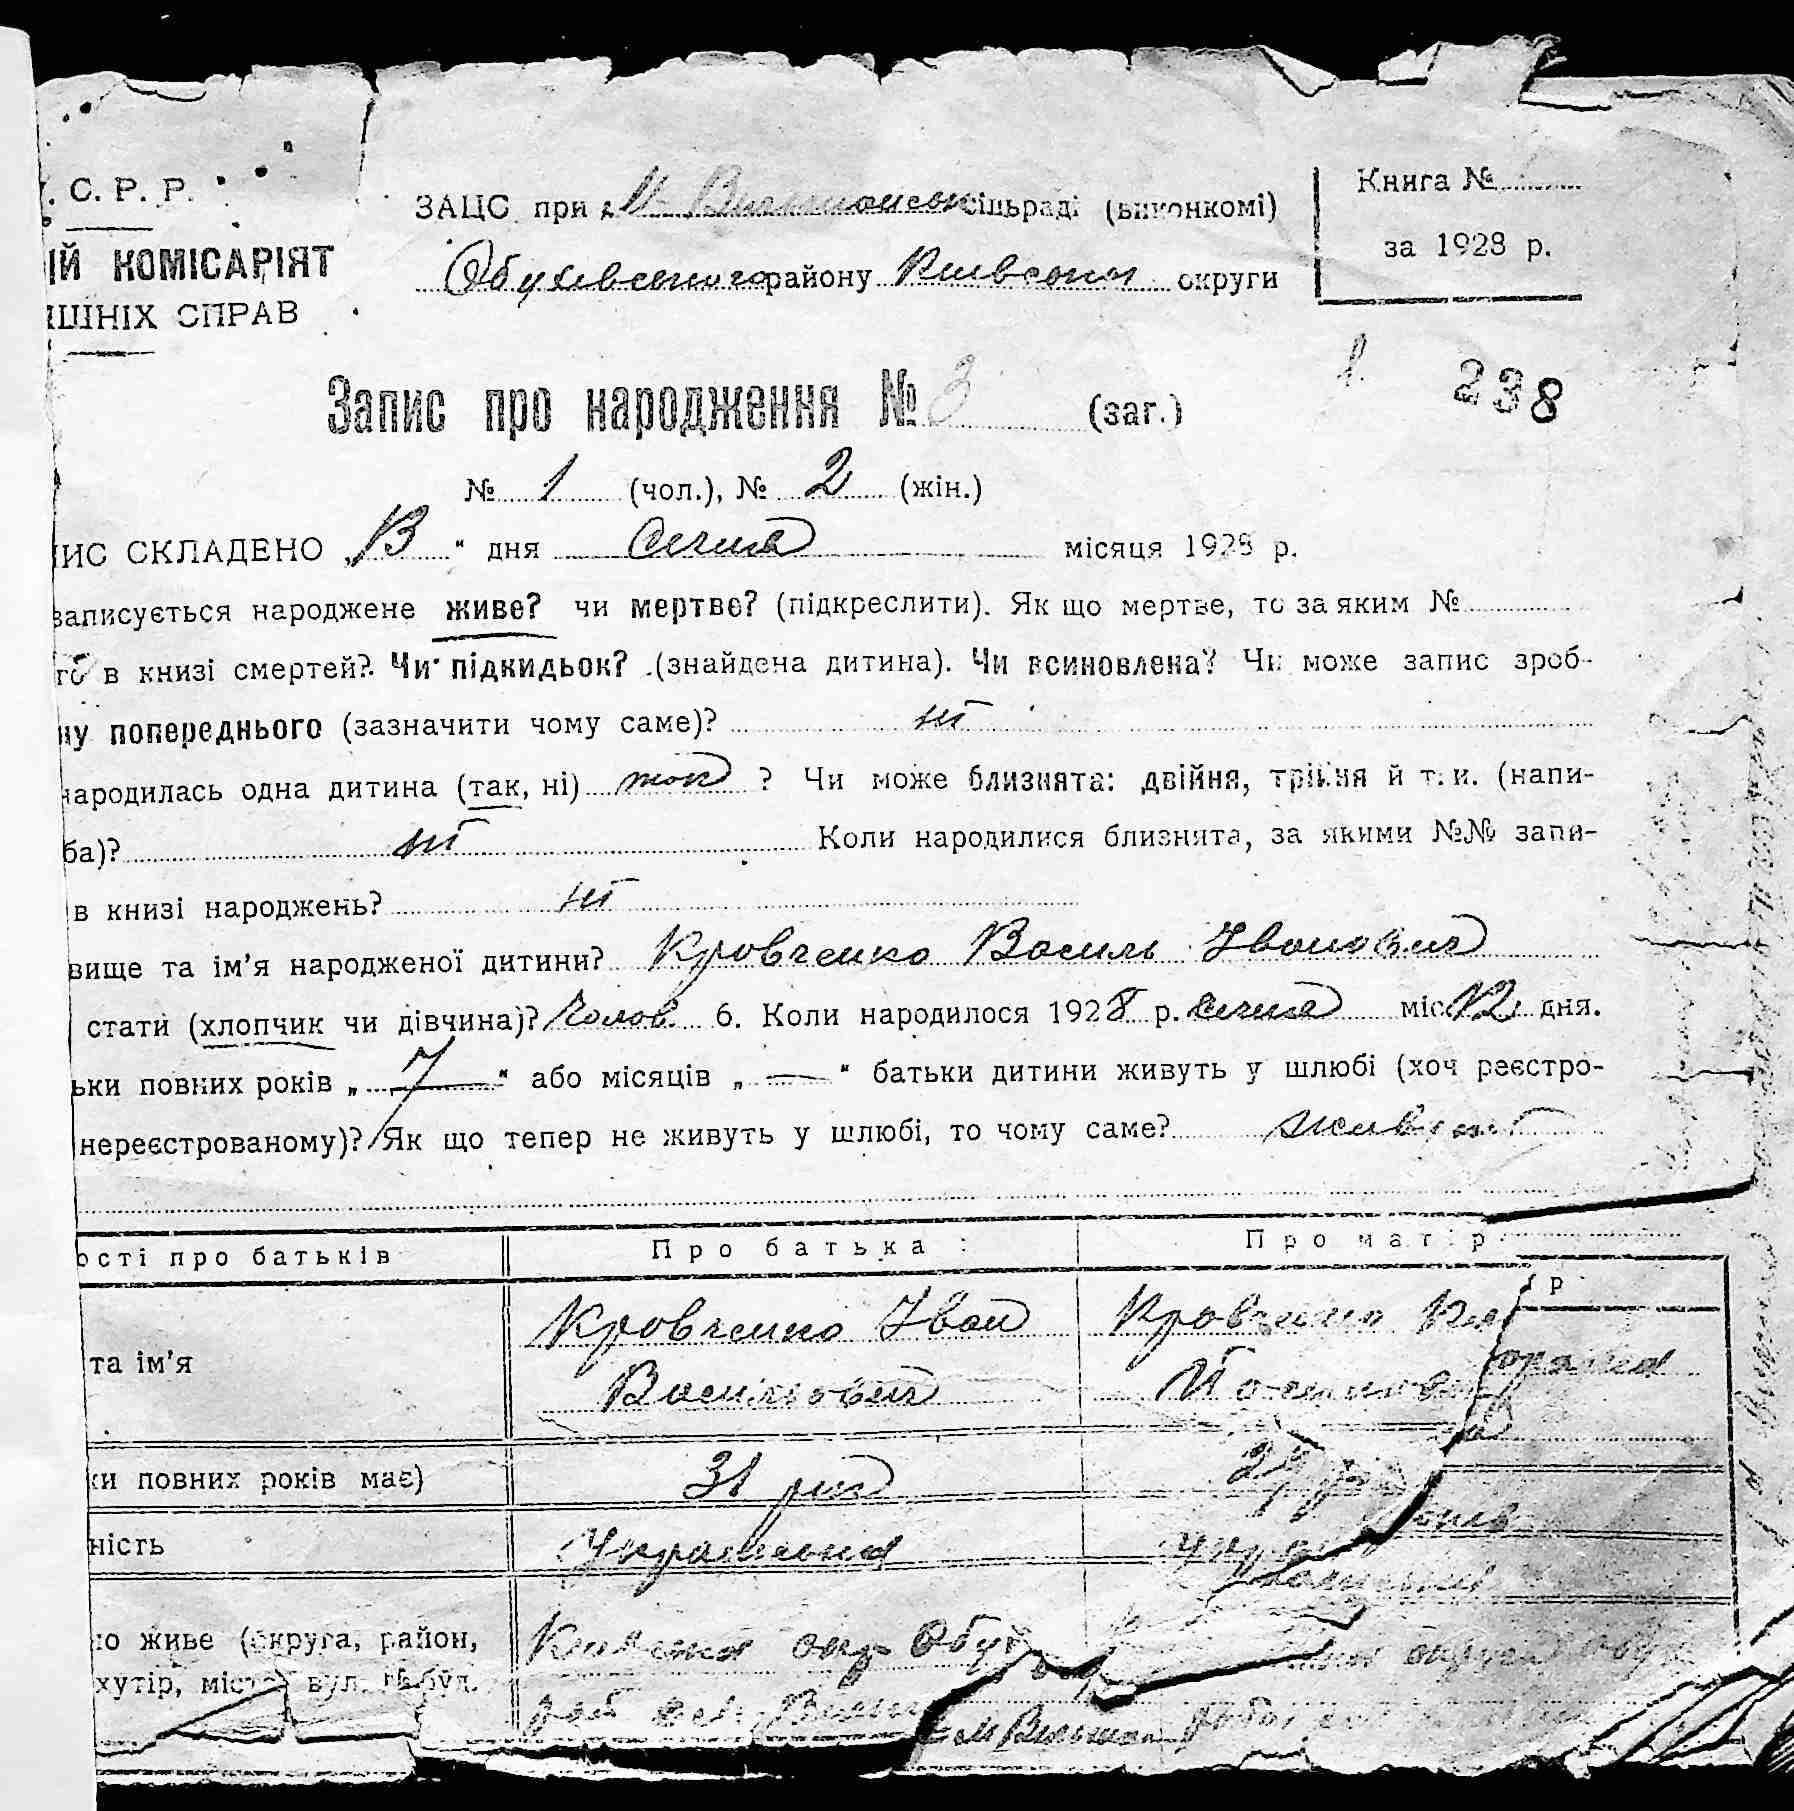 . С. Р. Р.
ІЙ КОМІСАРІЯТ
ІШНІХ СПРАВ
ЗАЦС при М. Вильшанськ сільраді (виконкомі)
Обухівського району Київськи округи
Книга №
за 1928 р.
238
Запис про народження № 3 (заг.)
№ 1 (чол.), № 2 (жін.)
ИС СКЛАДЕНО „13" дня Січня місяця 1928 р.
записується народжене живе? чи мертве? (підкреслити). Як що мертве, то за яким №
го в книзі смертей? Чи підкидьок? (знайдена дитина). Чи всиновлена? Чи може запис зроб-
ну попереднього (зазначити чому саме)? ні
народилась одна дитина (так, ні) так ? Чи може близнята: двійня, трійня й т. и. (напи-
ба)? ні Коли народилися близнята, за якими №№ запи-
в книзі народжень? ні
вище та ім'я народженої дитини? Кровченко Василь Іванович
стати (хлопчик чи дівчина)? Чолов. 6. Коли народилося 1928 р. Січня міс. 12 дня.
ьки повних років „ 7 " або місяців „ — " батьки дитини живуть у шлюбі (хоч реєстро-
нереєстрованому)? Як що тепер не живуть у шлюбі, то чому саме? живуть
ості про батьків Про батька: Про матір
р
та ім'я Кровченко Іван Кровченко
Васильович
ки повних років має) 31 рік
ність Українська
о живе (округа, район, Київська окр. Обух
хутір, місто, вул. № буд. М Вильшан